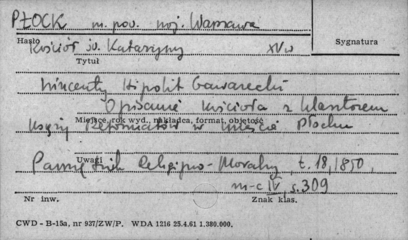 PŁOCK m. pow. woj. Warszawa
Hasło
Sygnatura
Kościół św. Katarzyny XV w
Tytuł
Wincenty Hipolit Gawarecki
Opisanie kościoła z klasztorem
Miejsce, rok wyd., nakładca, format, objętość
księży Reformatów w mieście Płocku
Uwagi
Pamiętnik Religijno-Moralny, t. 18, 1850,
m-c IV, s. 309
Nr inw.
Znak klas.
CWD - B-15a, nr 927/ZW/P. WDA 1216 25.4.61 1.380.000.